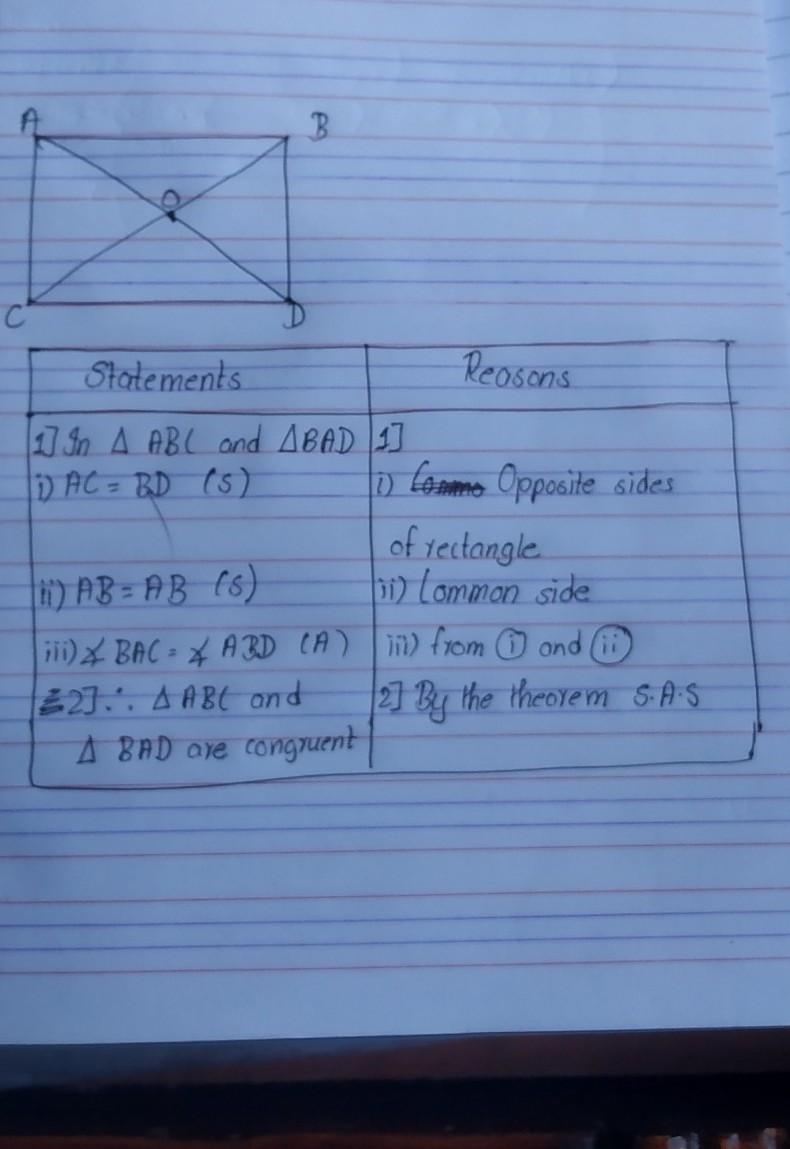 A B
O
C D
Statements Reasons
1] In Δ ABC and ΔBAD 1]
i) AC = BD (S) i) Opposite sides
of rectangle
ii) AB = AB (S) ii) Common side
iii) ∡ BAC = ∡ ABD (A) iii) from (i) and (ii)
2] ∴ Δ ABC and 2] By the theorem S.A.S
Δ BAD are congruent